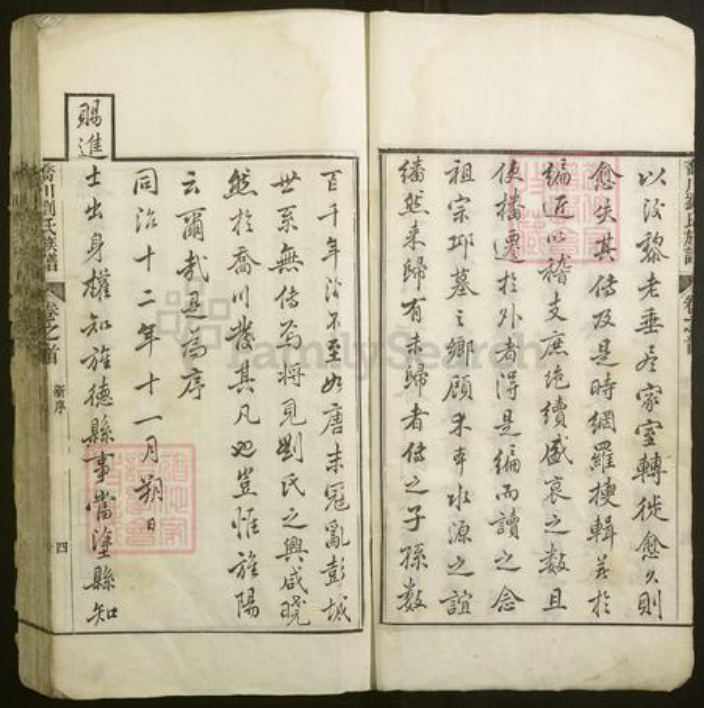 以後黎老垂盡家室轉徙愈久則
愈失其傳及是時網羅搜輯并於
編近以稽支庶絕續盛衰之數且
使播遷於外者得是編而讀之念
祖宗邱墓之鄉顧未本水源之誼
繙然來歸有未歸者傳之子孫數
百千年後不至如唐末冦亂彭城
世系無傳焉將見劉氏之興咸曉
然於喬川發其凡也豈惟旌陽
云爾哉是為序
同治十二年十一月朔日
賜進士出身權知旌德縣事當塗縣知
喬川劉氏族譜
卷之首
新序
四
FamilySearch